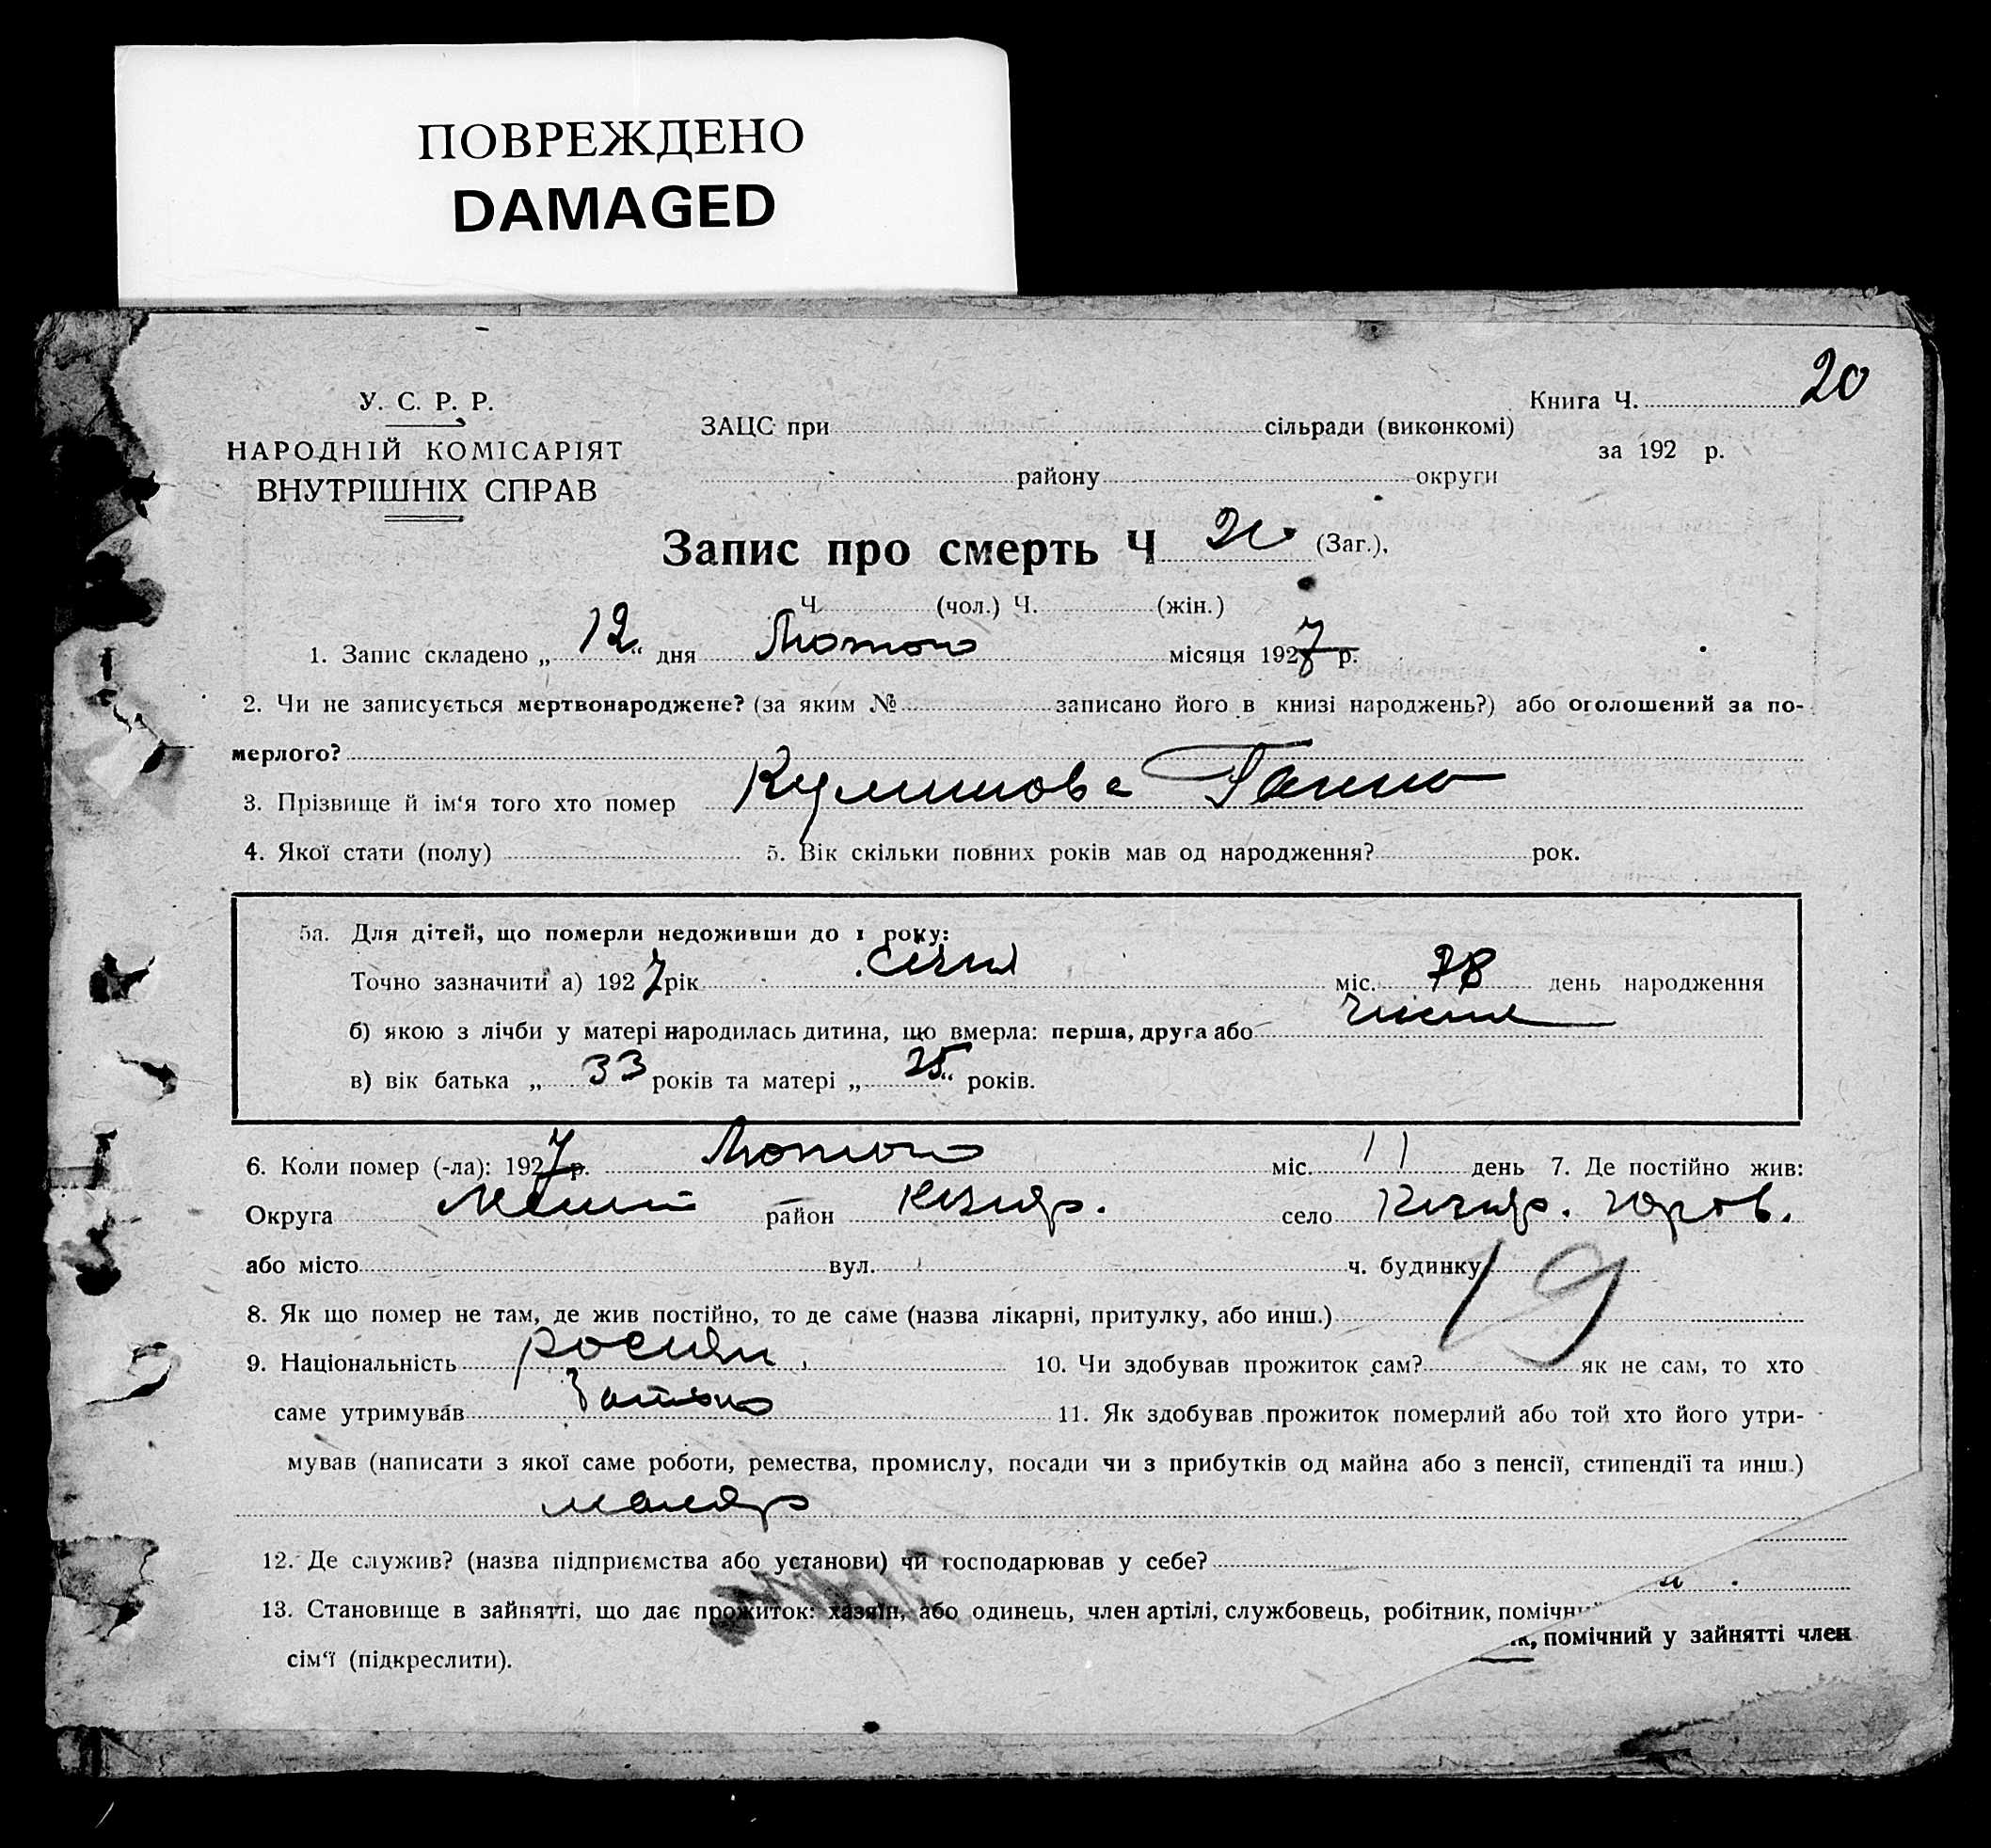 ПОВРЕЖДЕНО
DAMAGED
20
У. С. Р. Р.
НАРОДНІЙ КОМІСАРІЯТ
ВНУТРІШНІХ СПРАВ
Книга Ч.
за 192 р.
ЗАЦС при сільради (виконкомі)
району округи
Запис про смерть Ч 20 (Заг.),
Ч. (чол.) Ч. (жін.)
1. Запис складено „ 12 “ дня Лютого місяця 1927 р.
2. Чи не записується мертвонароджене? (за яким № записано його в книзі народжень?) або оголошений за по-
мерлого?
3. Прізвище й ім‘я того хто помер Ганна
4. Якої стати (полу) 5. Вік скільки повних років мав од народження? рок.
5а. Для дітей, що померли недоживши до 1 року:
Точно зазначити а) 1927 рік Січня міс. день народження
б) якою з лічби у матері народилась дитина, що вмерла: перша, друга або
в) вік батька „ 33 років та матері „ 25 “ років.
6. Коли помер (-ла): 1927 р. Лютого міс. 11 день 7. Де постійно жив:
Округа район село
або місто вул. ч. будинку 19
8. Як що помер не там, де жив постійно, то де саме (назва лікарні, притулку, або инш.)
9. Національність 10. Чи здобував прожиток сам? як не сам, то хто
саме утримував батько 11. Як здобував прожиток померлий або той хто його утри-
мував (написати з якої саме роботи, ремества, промислу, посади чи з прибутків од майна або з пенсії, стипендії та инш.)
маляр
12. Де служив? (назва підприємства або установи) чи господарював у себе?
13. Становище в зайнятті, що дає прожиток: хазяїн, або одинець, член артілі, службовець, робітник,
помічний у зайнятті член
сім‘ї (підкреслити).